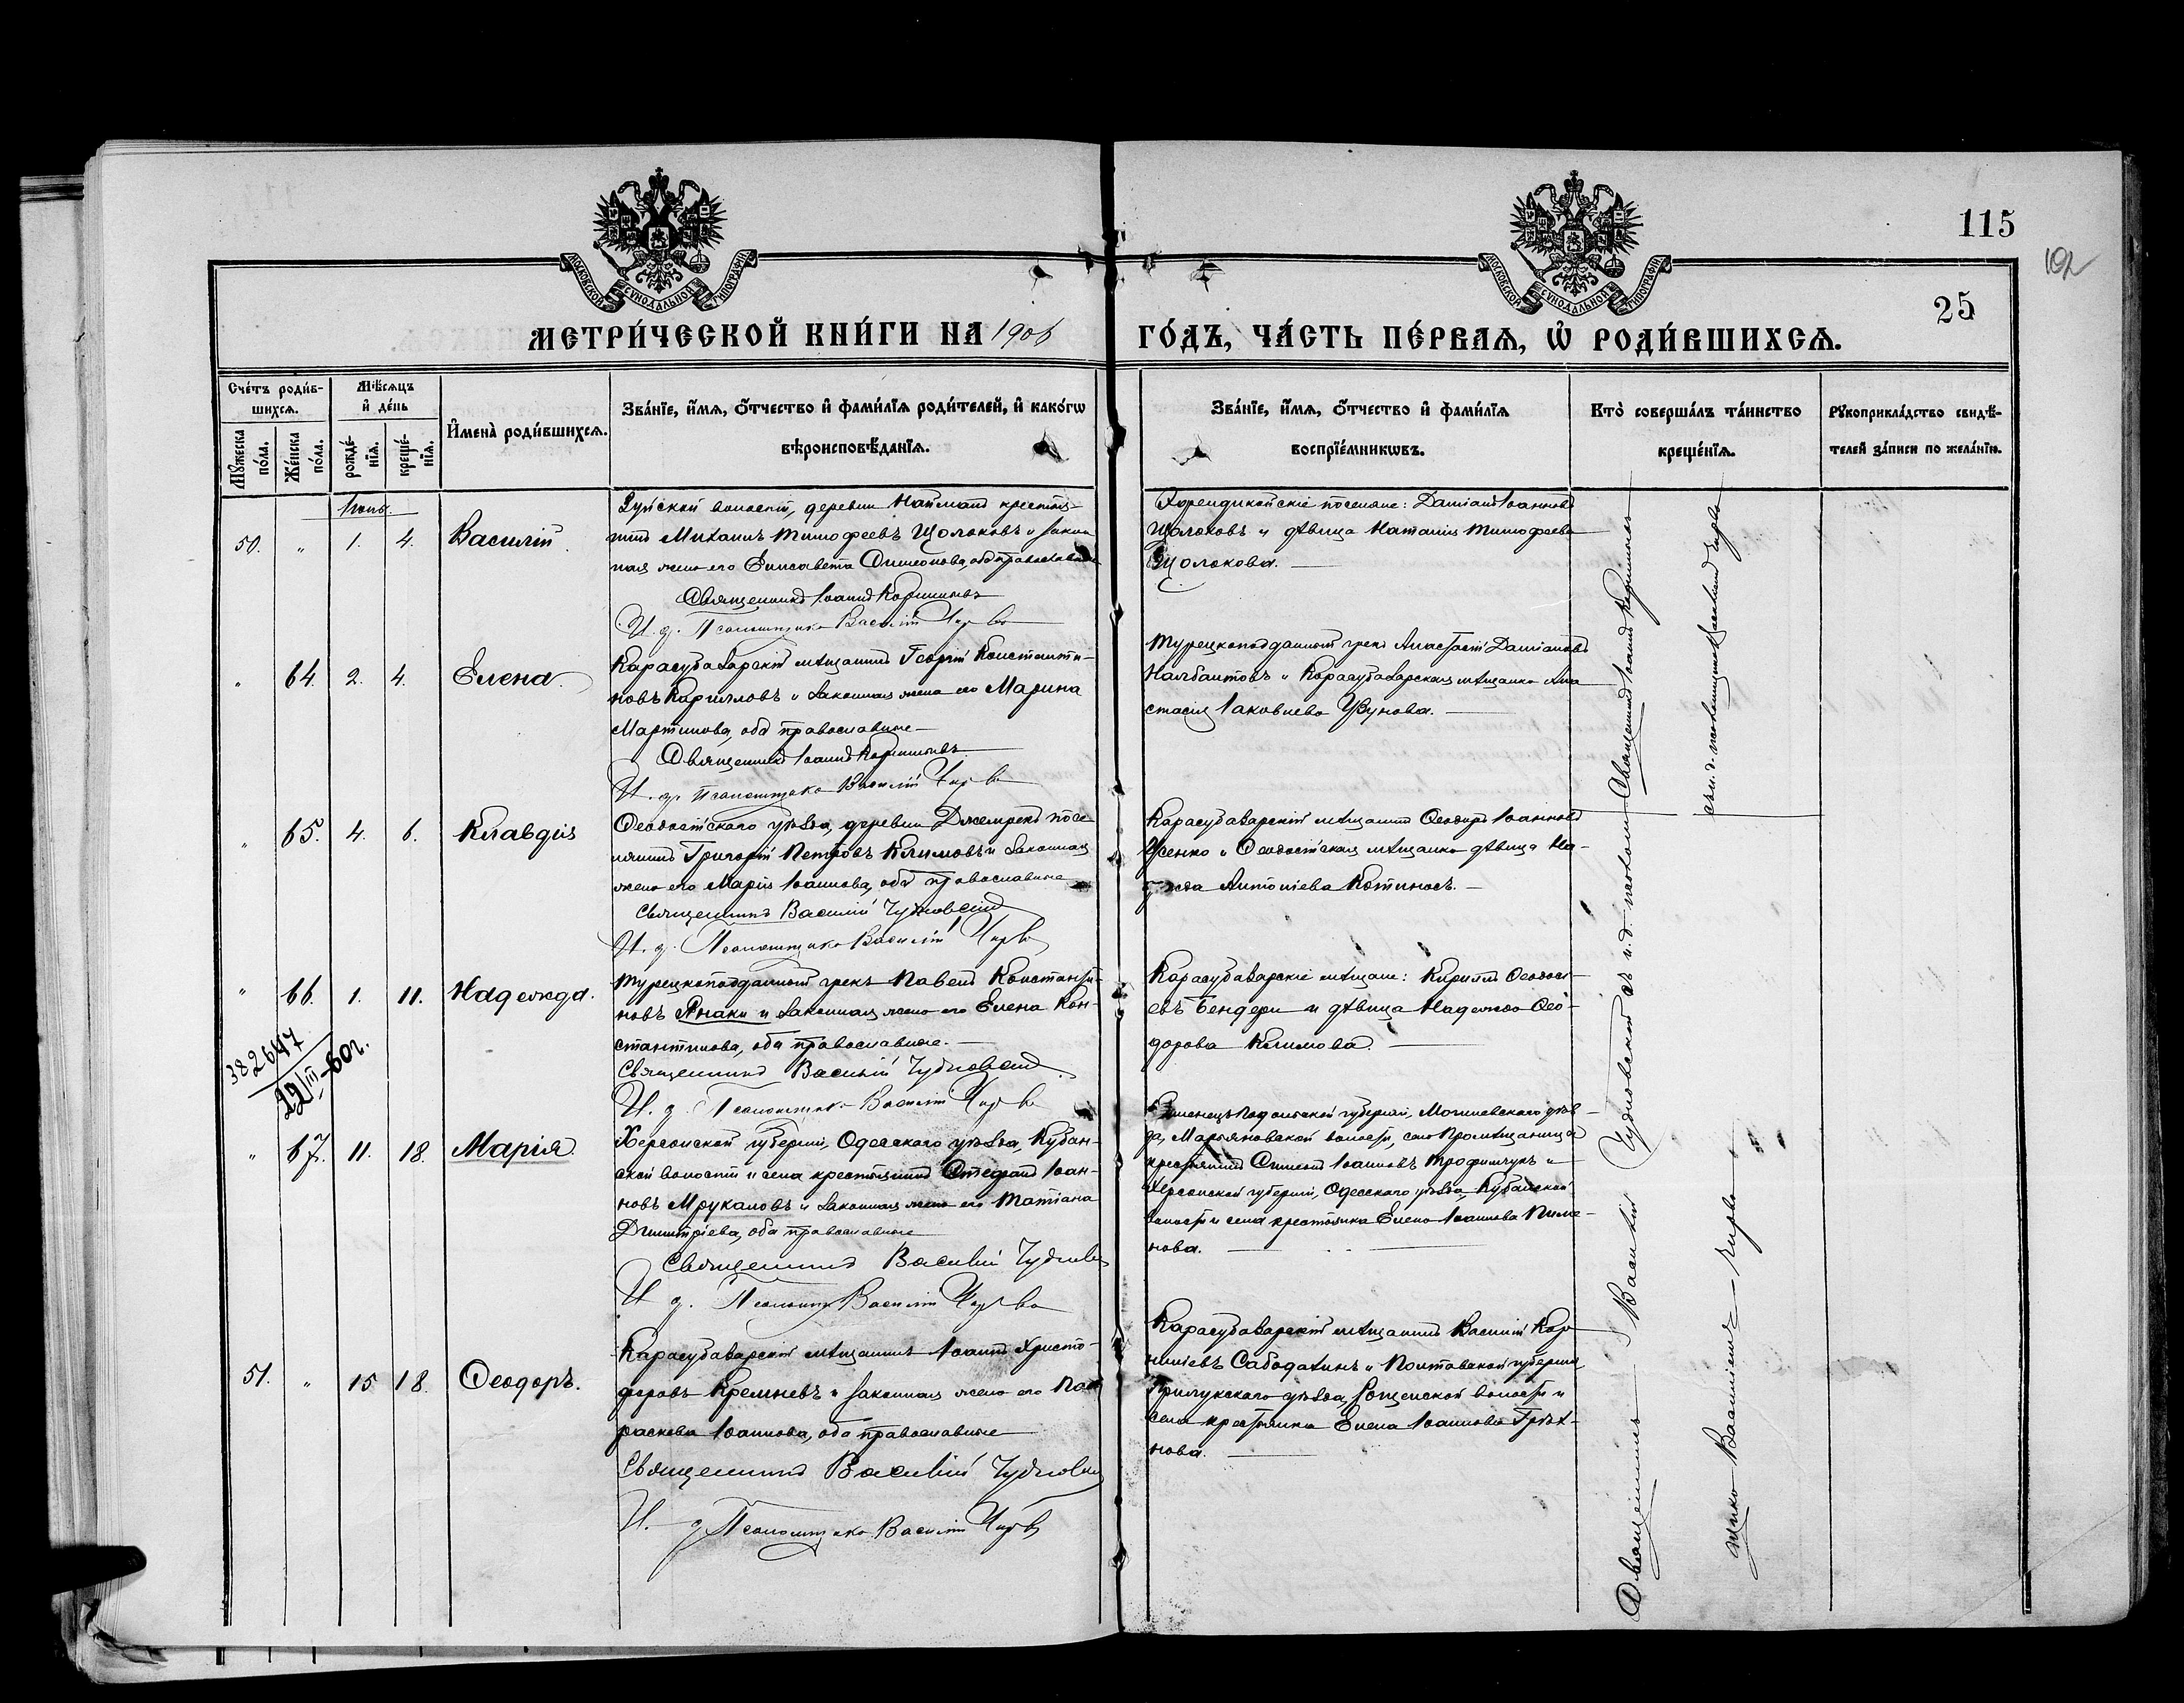 115
102
25
МОСКОВСКОЙ СѴНОДАЛЬНОЙ ТИПОГРАФІИ
МОСКОВСКОЙ СѴНОДАЛЬНОЙ ТИПОГРАФІИ
МЕТРИ́ЧЕСКОЙ КНИ́ГИ НА 1906 ГО́ДЪ, ЧА́СТЬ ПЕ́РВАѦ, Ѡ҆ РОДИ́ВШИХСѦ.
Сче́тъ роди́в-
шихсѧ.
Мѹ́жеска
по́ла.
Же́нска
по́ла.
Мѣ́сѧцъ
и҆ де́нь
рожде́-
нїѧ.
креще́-
нїѧ.
И҆мена̀ роди́вшихсѧ.
Зва́нїе, и҆́мѧ, ѻ҆́тчество и҆ фами́лїѧ роди́телей, и҆ како́гѡ
вѣроисповѣ́данїѧ.
Зва́нїе, и҆́мѧ, ѻ҆́тчество и҆ фами́лїѧ
воспрїе́мникѡвъ.
Кто̀ соверша́лъ та́инство
креще́нїѧ.
Рꙋкоприкла́дство свидѣ́-
телей за́писи по жела́нїю.
Іюнь.
50. " 1. 4. Василій.
Зуйской волости, деревни Найманъ крестья-
нинъ Михаилъ Тимофеевъ Щолоковъ и закон
ная жена его Елисавета Симеонова, оба православн
Священникъ Іоаннъ
И. д. Псаломщика Василій
посе­ляне: Даміанъ Іоанновъ
Щолоковъ и дѣвица Наталія Тимофеева
Щолокова.
" 64. 2. 4. Елена.
Карасубазарскій мѣщанинъ Георгій Константи-
новъ Кирилловъ и законная жена его Марина
Мартинова, оба православные
Священникъ Іоаннъ
И. д. Псаломщика Василій
Турецкоподданный грекъ Анастасій Даміановъ
Налбантовъ и Карасубазарская мѣщанка Ана
стасія Іаковлева Узунова.
" 65. 4. 6. Клавдія
Ѳеодосійскаго уѣзда, деревни посе
лянинъ Григорій Петровъ Климовъ и законная
жена его Марія Іоаннова, оба православные
Священникъ Василій Чудновскій
И. д. Псаломщика Василій
Карасубазарскій мѣщанинъ Ѳеодоръ Іоанновъ
Усенко и Ѳеодосійская мѣщанка дѣвица На-
дежда Антоніева
" 66. 1. 11. Надежда.
Турецкоподданный грекъ Павелъ Константи-
новъ Янаки и законная жена его Елена Кон-
стантинова, оба православные.
Священникъ Василій Чудновскій
И. д. Псаломщика Василій
Карасубазарскіе мѣщане: Кириллъ Ѳеодось-
евъ Бендери и дѣвица Надежда Ѳео-
дорова Климова.
382647
22/III-60г.
" 67. 11. 18. Марія.
Херсонской губерніи, Одесскаго уѣзда, Кубан-
ской волости и села крестьянинъ Стефанъ Іоан-
новъ Мрукаловъ и законная жена его Татіана
Димитріева, оба православные
Священникъ Василій
И. д. Псаломщ Василій
Каменецъ Подольской губерніи, Могилевскаго уѣз-
да, Марьяновской волости, села
крестьянинъ Симеонъ Іоанновъ Трофимчукъ и
Херсонской губерніи, Одесскаго уѣзда, Кубанской
волости и села крестьянка Елена Іоаннова Пиме-
нова.
51. " 15 18. Ѳеодоръ.
Карасубазарскій мѣщанинъ Іоаннъ Христо-
форовъ Кремневъ и законная жена его Па
раскева Іоаннова, оба православные
Священникъ Василій
И. д. Псаломщика Василій
Карасубазарскій мѣщанинъ Василій Кор
ниліевъ и Полтавской губерніи,
Прилукскаго уѣзда, волости и
села крестьянка Елена Іоаннова
нова.
Священникъ Іоаннъ
Священникъ Василій Чудновскій съ и. д. псалом
щика Василіемъ